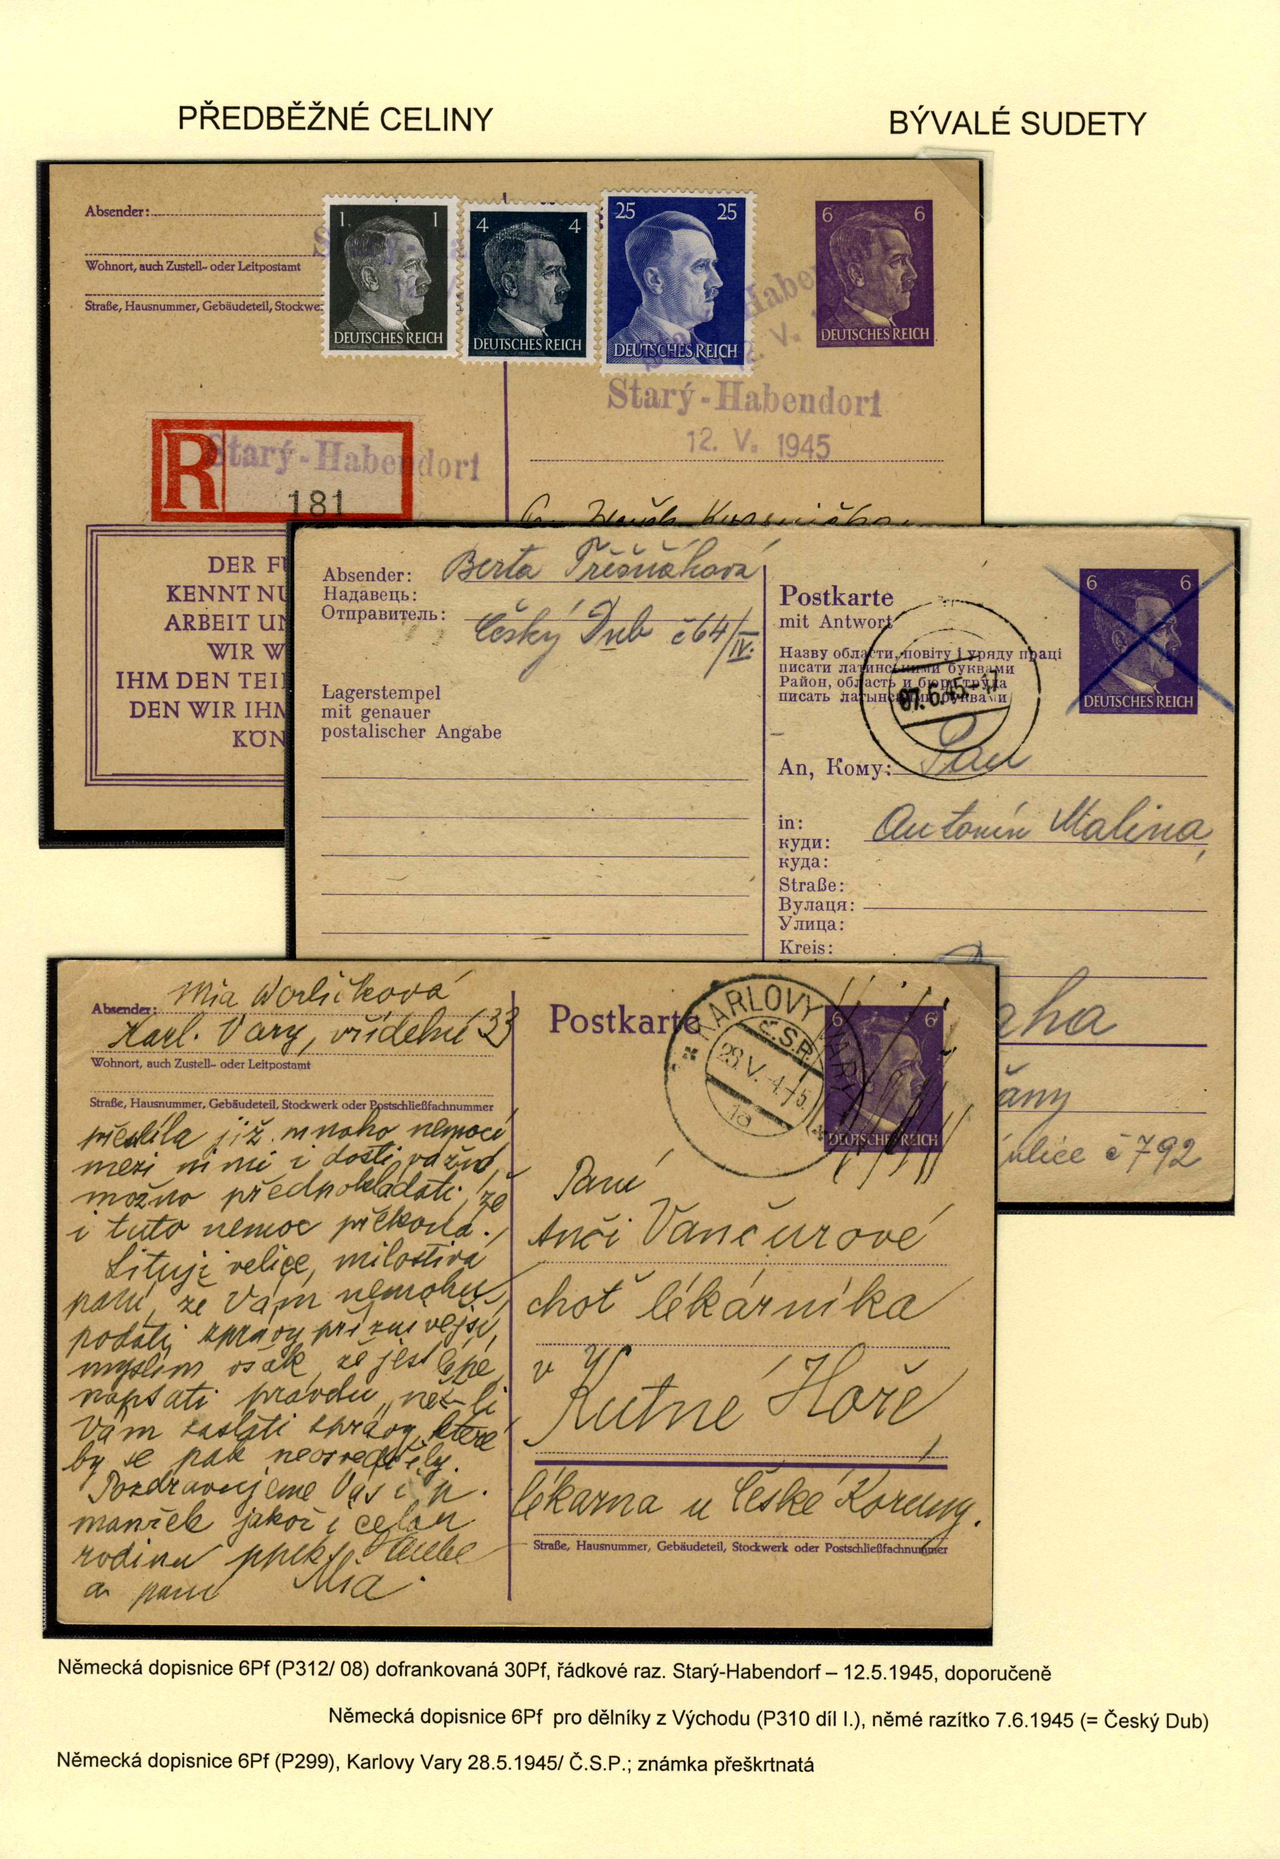 PŘEDBĚŽNÉ CELINY
BÝVALÉ SUDETY
Absender:
Wohnort, auch Zustell- oder Leitpostamt
Straße, Hausnummer, Gebäudeteil, Stockwe
1 1
DEUTSCHES REICH
4 4
DEUTSCHES REICH
25 25
DEUTSCHES REICH
6 6
DEUTSCHES REICH
Starý-Habendorf
12. V. 1945
R
Starý-Habendorf
181
DER FÜ
KENNT NU
ARBEIT UN
WIR W
IHM DEN TEIL
DEN WIR IHM
KÖN
Absender: Berta Třešňáková
Надавець:
Отправитель: Český Dub č64/IV.
Lagerstempel
mit genauer
postalischer Angabe
Postkarte
mit Antwort
Назву области, повіту і уряду праці
писати латинськими буквами
Район, область и бюро труда
писать латынскими буквами
6 6
DEUTSCHES REICH
07.6.45.-17
An, Кому: Pan
Antonín Malina,
in:
куди:
куда:
Straße:
Вулаця:
Улица:
Kreis:
aha
čany
ulice č 792
Absender: Mia Worličková
Karl. Vary, vřídelní 33
Wohnort, auch Zustell- oder Leitpostamt
Straße, Hausnummer, Gebäudeteil, Stockwerk oder Postschließfachnummer
Postkarte
KARLOVY VARY
Č.S.P.
28.V.45
1a
6 6
DEUTSCHES REICH
přestála již mnoho nemocí
mezi nimi i dosti vážné,
možno předpokládati, že
i tuto nemoc překoná.
Lituji velice, milostivá
paní, že Vám nemohu
podati zprávy příznivější,
myslím však, že jest lépe
napsati pravdu, než-li
Vám zaslati zprávy, které
by se pak neosvědčily.
Pozdravujeme Vás i p.
manžela jakož i celou
rodinu
a paní Mia.
Paní
Anči Vančurové
choť lékárníka
v Kutné Hoře,
lékárna u České Koruny.
Straße, Hausnummer, Gebäudeteil, Stockwerk oder Postschließfachnummer
Německá dopisnice 6Pf (P312/ 08) dofrankovaná 30Pf, řádkové raz. Starý-Habendorf – 12.5.1945, doporučeně
Německá dopisnice 6Pf pro dělníky z Východu (P310 díl I.), němé razítko 7.6.1945 (= Český Dub)
Německá dopisnice 6Pf (P299), Karlovy Vary 28.5.1945/ Č.S.P.; známka přeškrtnatá